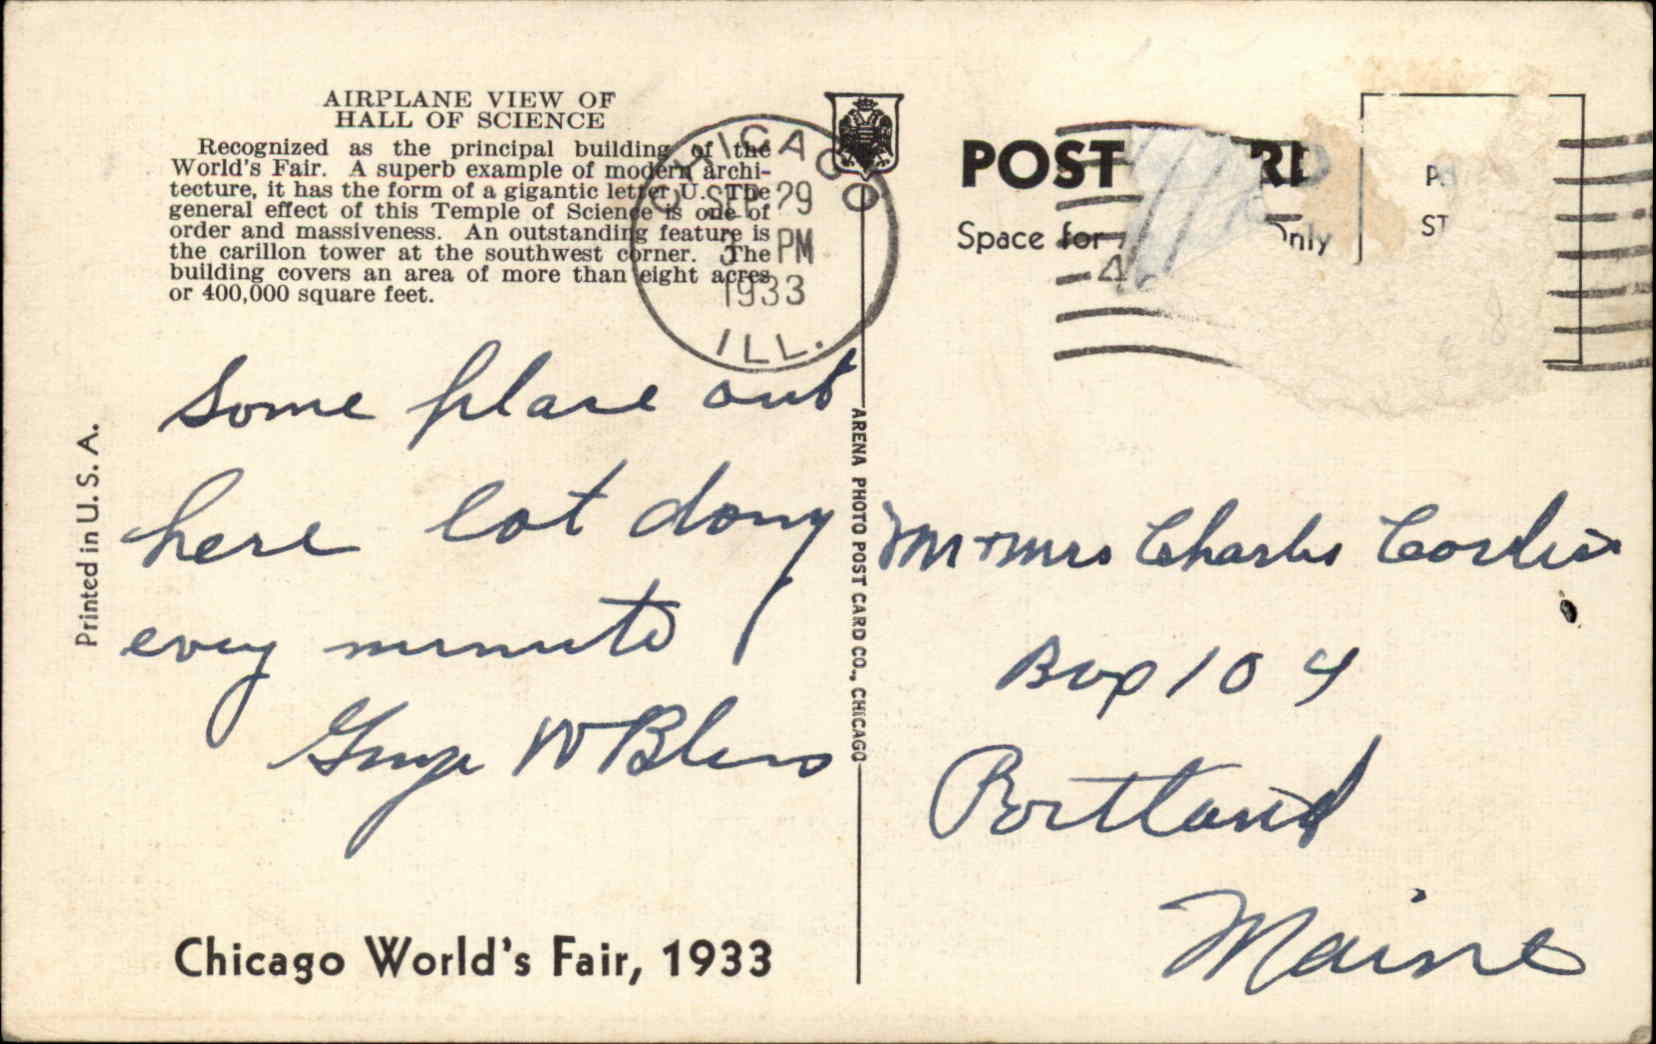 AIRPLANE VIEW OF
HALL OF SCIENCE
Recognized as the principal building of the
World's Fair. A superb example of modern archi-
tecture, it has the form of a gigantic letter U. The
general effect of this Temple of Science is one of
order and massiveness. An outstanding feature is
the carillon tower at the southwest corner. The
building covers an area of more than eight acres
or 400,000 square feet.
CHICAGO
SEP 29
PM
1933
ILL.
Some place out
here lot doing
every minute
George W
Printed in U. S. A.
Chicago World's Fair, 1933
ARENA PHOTO POST CARD CO., CHICAGO
POST
Space for
Only
Mr + Mrs Charles
Box 104
Portland
Maine